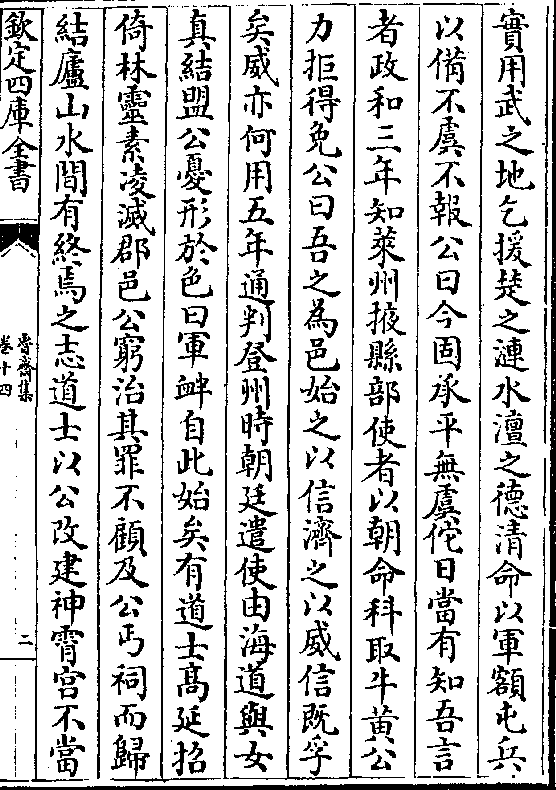 實用武之地乞援楚之漣水澶之德清命以軍額屯兵
以備不虞不報公曰今固承平無虞佗日當有知吾言
者政和三年知萊州掖縣部使者以朝命科取牛黄公
力拒得免公曰吾之為邑始之以信濟之以威信既孚
矣威亦何用五年通判登州時朝廷遣使由海道與女
真結盟公憂形於色曰軍衅自此始矣有道士髙延招
倚林靈素凌滅郡邑公窮治其罪不顧及公丐祠而歸
結廬山水間有終焉之志道士以公改建神霄宫不當
欽定四庫全書
魯齋集
卷十四
二